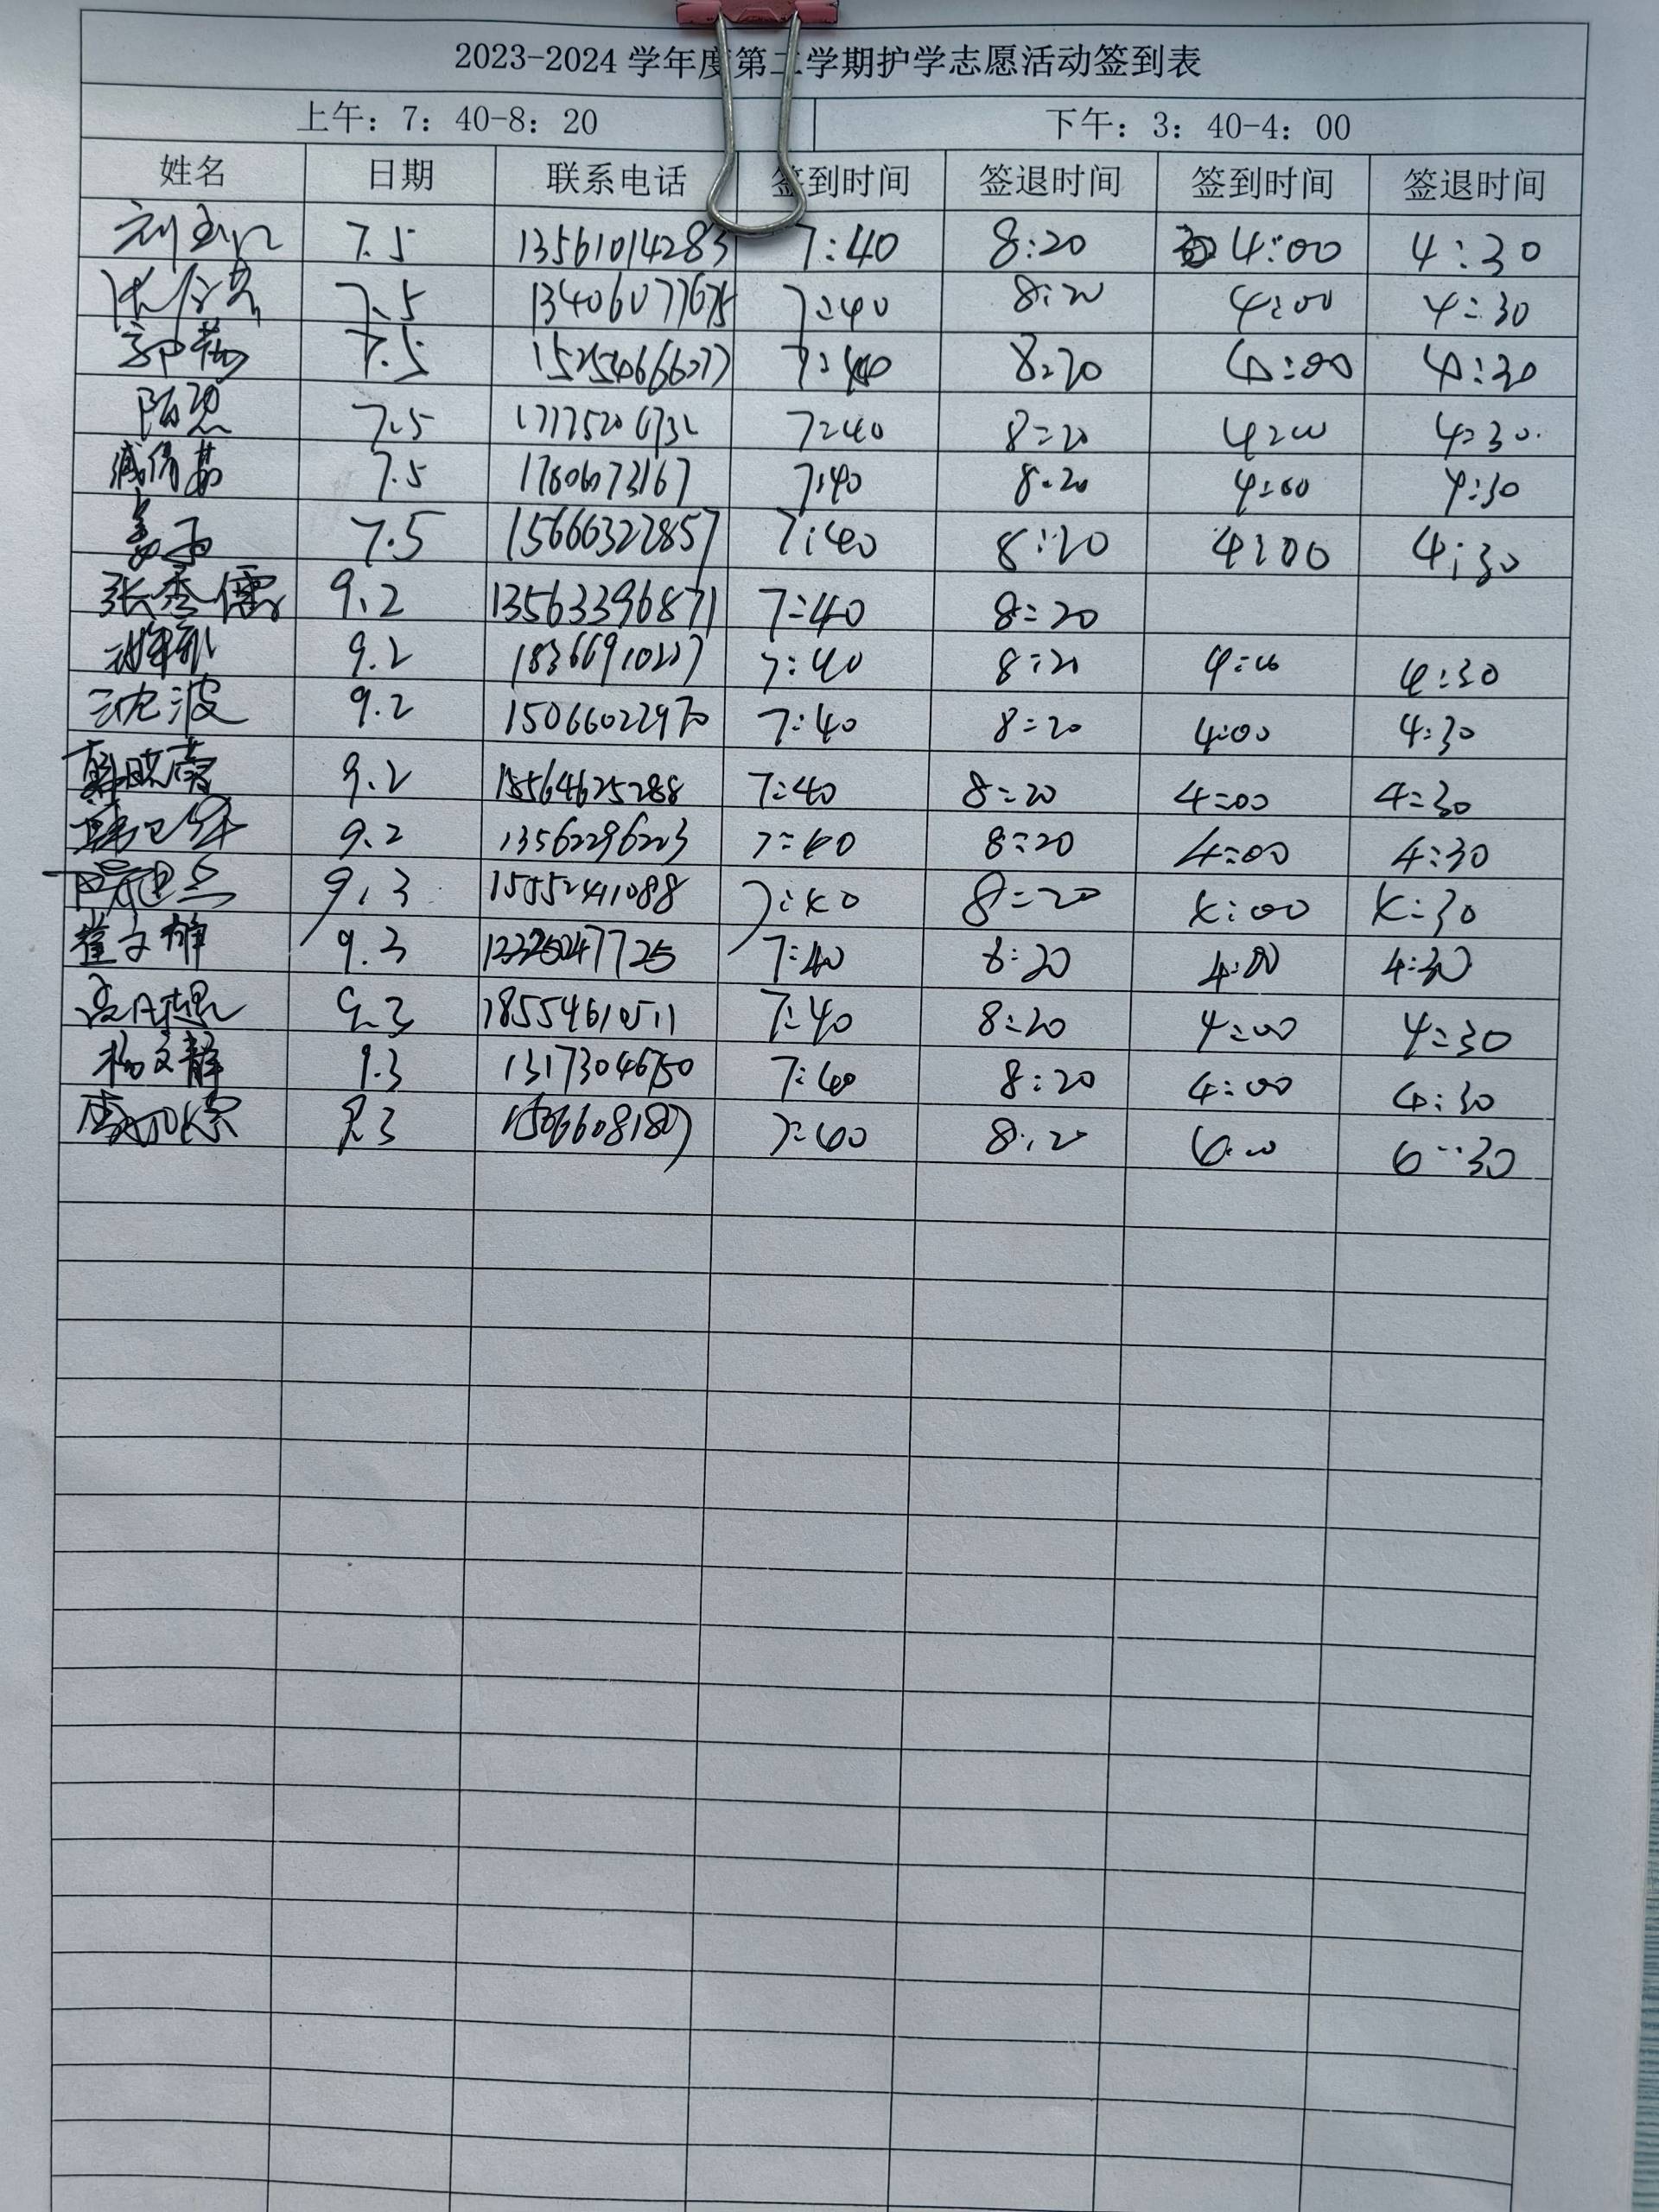 2023-2024 学年度第二学期护学志愿活动签到表
上午：7：40-8：20 下午：3：40-4：00
姓名 日期 联系电话 签到时间 签退时间 签到时间 签退时间
7.5 13561014283 7:40 8:20 4:00 4:30
7.5 13406077675 7:40 8:20 4:00 4:30
7.5 15254066077 7:40 8:20 4:00 4:30
7.5 7:40 8:20 4:00 4:30
7.5 7:40 8:20 4:00 4:30
7.5 15666322857 7:40 8:20 4:00 4:30
张秀儒 9.2 13563396871 7:40 8:20
9.2 18366910227 7:40 8:20 4:00 4:30
沈波 9.2 15066022970 7:40 8:20 4:00 4:30
9.2 15564625288 7:40 8:20 4:00 4:30
9.2 13562296223 7:40 8:20 4:00 4:30
9.3 15552411088 7:40 8:20 4:00 4:30
崔文静 9.3 7:40 8:20 4:00 4:30
9.3 18554610511 7:40 8:20 4:00 4:30
杨文静 9.3 13173046750 7:40 8:20 4:00 4:30
9.3 15066081807 7:40 8:20